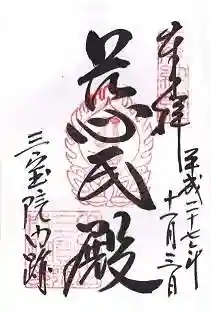 奉拝
平成二十七年
十一月三日
慈氏殿
三宝院門跡